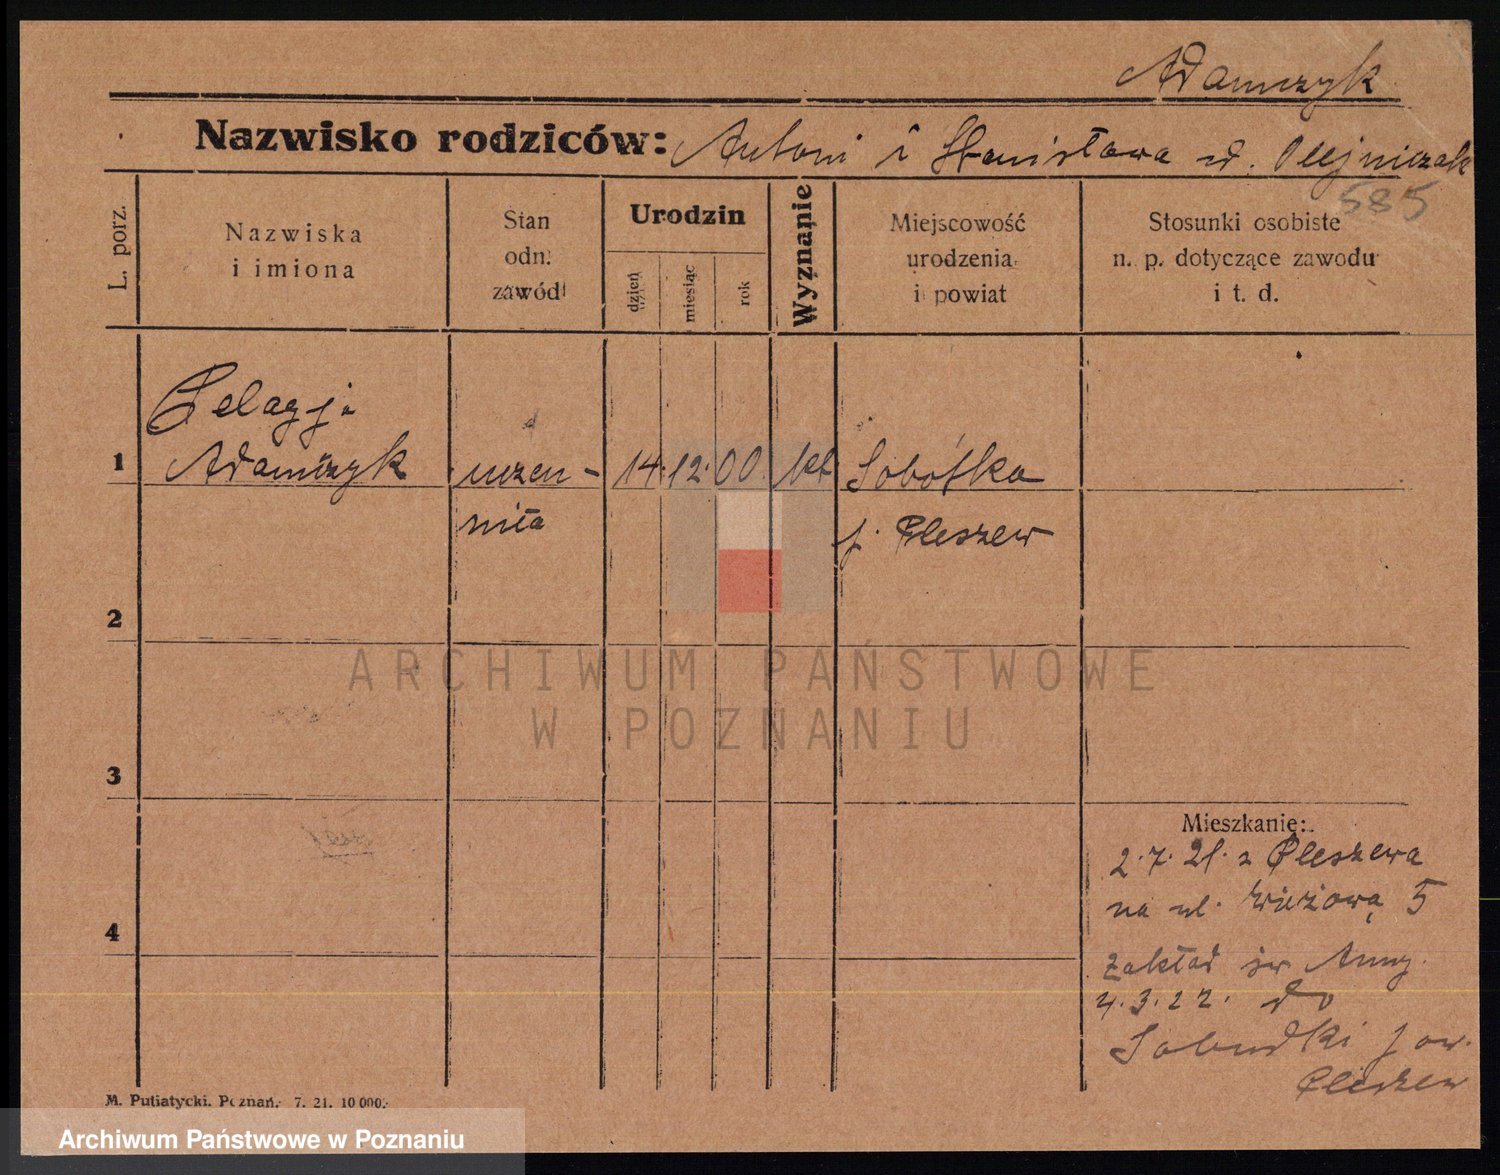 Adamczyk
Nazwisko rodziców: Antoni i Stanisława z d. Olejniczak
585
L. porz.
Nazwiska
i imiona
Stan
odn.
zawód
Urodzin
dzień
miesiąc
rok
Wyznanie
Miejscowość
urodzenia
i powiat
Stosunki osobiste
n. p. dotyczące zawodu
i t. d.
Pelagja
1 Adamczyk uczen- 14. 12. 00. kt Sobótka
nica p. Pleszew
2
3
4
Mieszkanie:
2.7.21. z Pleszewa
na ul. Wieżową 5
Zakład św Anny.
4.3.22. do
Sobudki pow.
Pleszew
M. Putiatycki. Poznań. 7. 21. 10 000.
ARCHIWUM PAŃSTWOWE
W POZNANIU
Archiwum Państwowe w Poznaniu